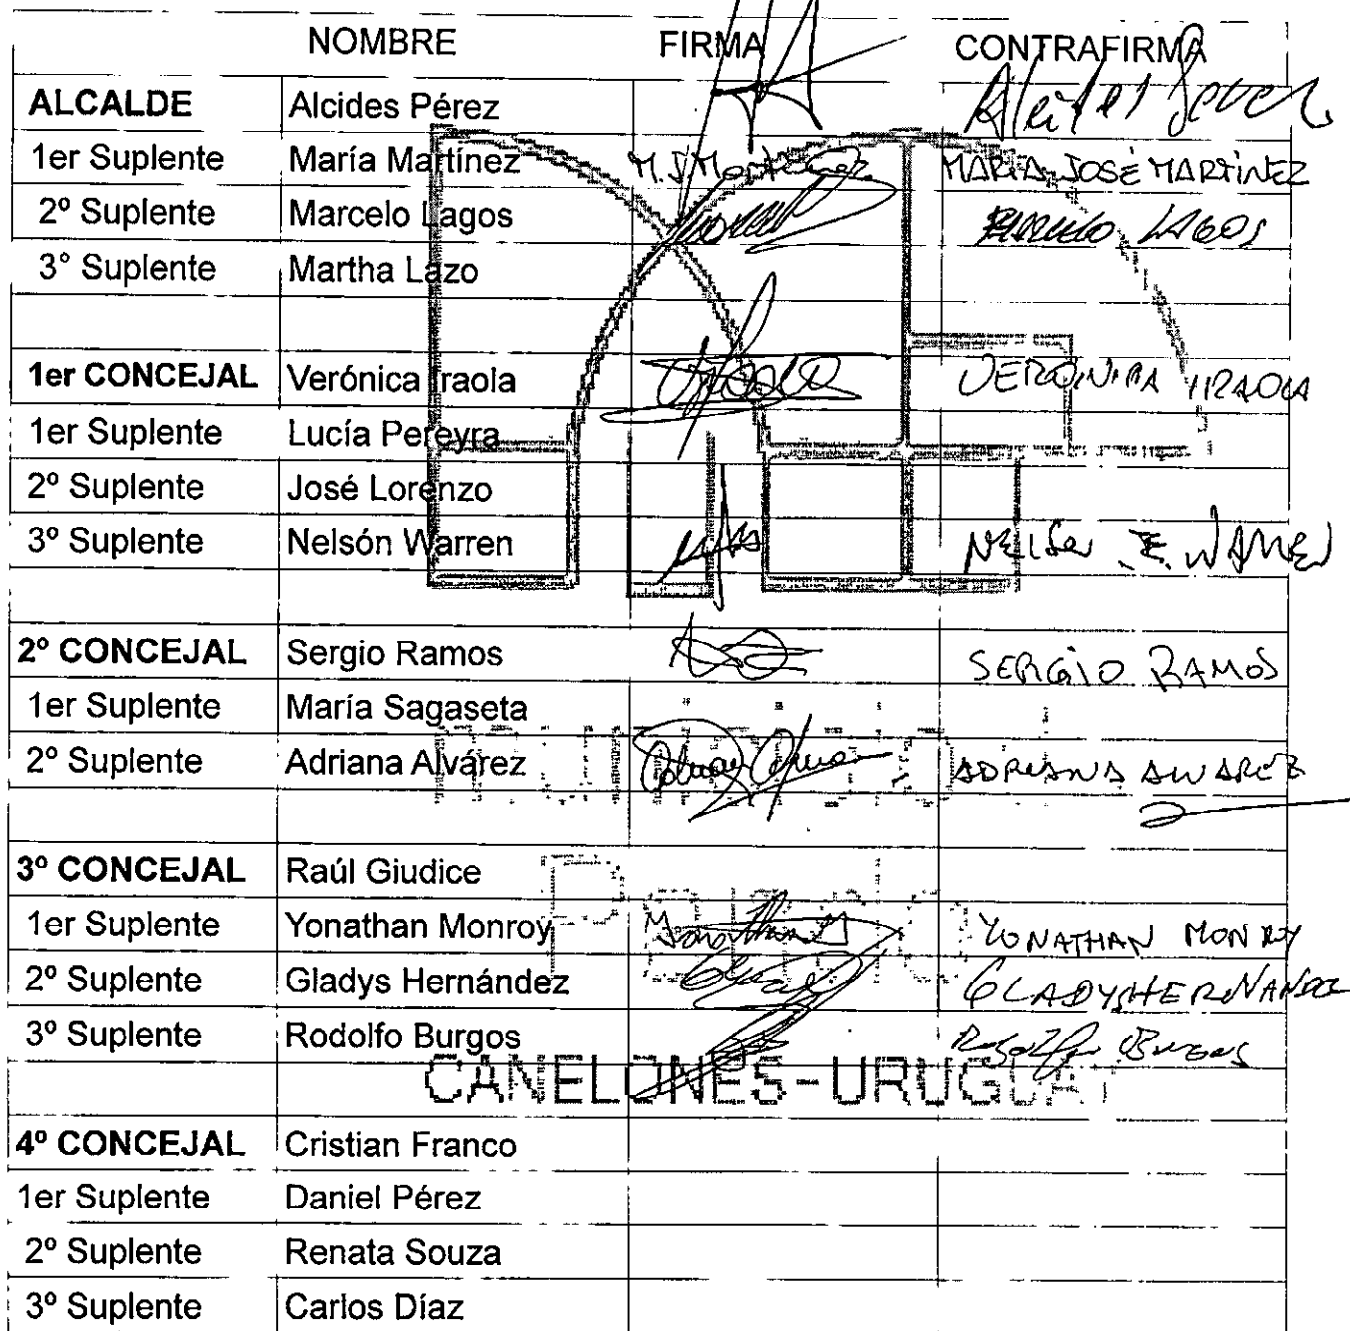 NOMBRE FIRMA CONTRAFIRMA
ALCALDE Alcides Pérez
1er Suplente María Martínez M.J.Martínez MARÍA JOSÉ MARTÍNEZ
2º Suplente Marcelo Lagos LAGOS
3° Suplente Martha Lazo
1er CONCEJAL Verónica Iraola VERONICA IRAOLA
1er Suplente Lucía Pereyra
2º Suplente José Lorenzo
3º Suplente Nelsón Warren NELSON E. WARREN
2º CONCEJAL Sergio Ramos SERGIO RAMOS
1er Suplente María Sagaseta
2º Suplente Adriana Alvárez ADRIANA ALVAREZ
3º CONCEJAL Raúl Giudice
1er Suplente Yonathan Monroy Yonathan M YONATHAN MONROY
2º Suplente Gladys Hernández GLADYS HERNANDEZ
3º Suplente Rodolfo Burgos Rodolfo Burgos
CANELONES-URUGUAY
4º CONCEJAL Cristian Franco
1er Suplente Daniel Pérez
2º Suplente Renata Souza
3º Suplente Carlos Díaz